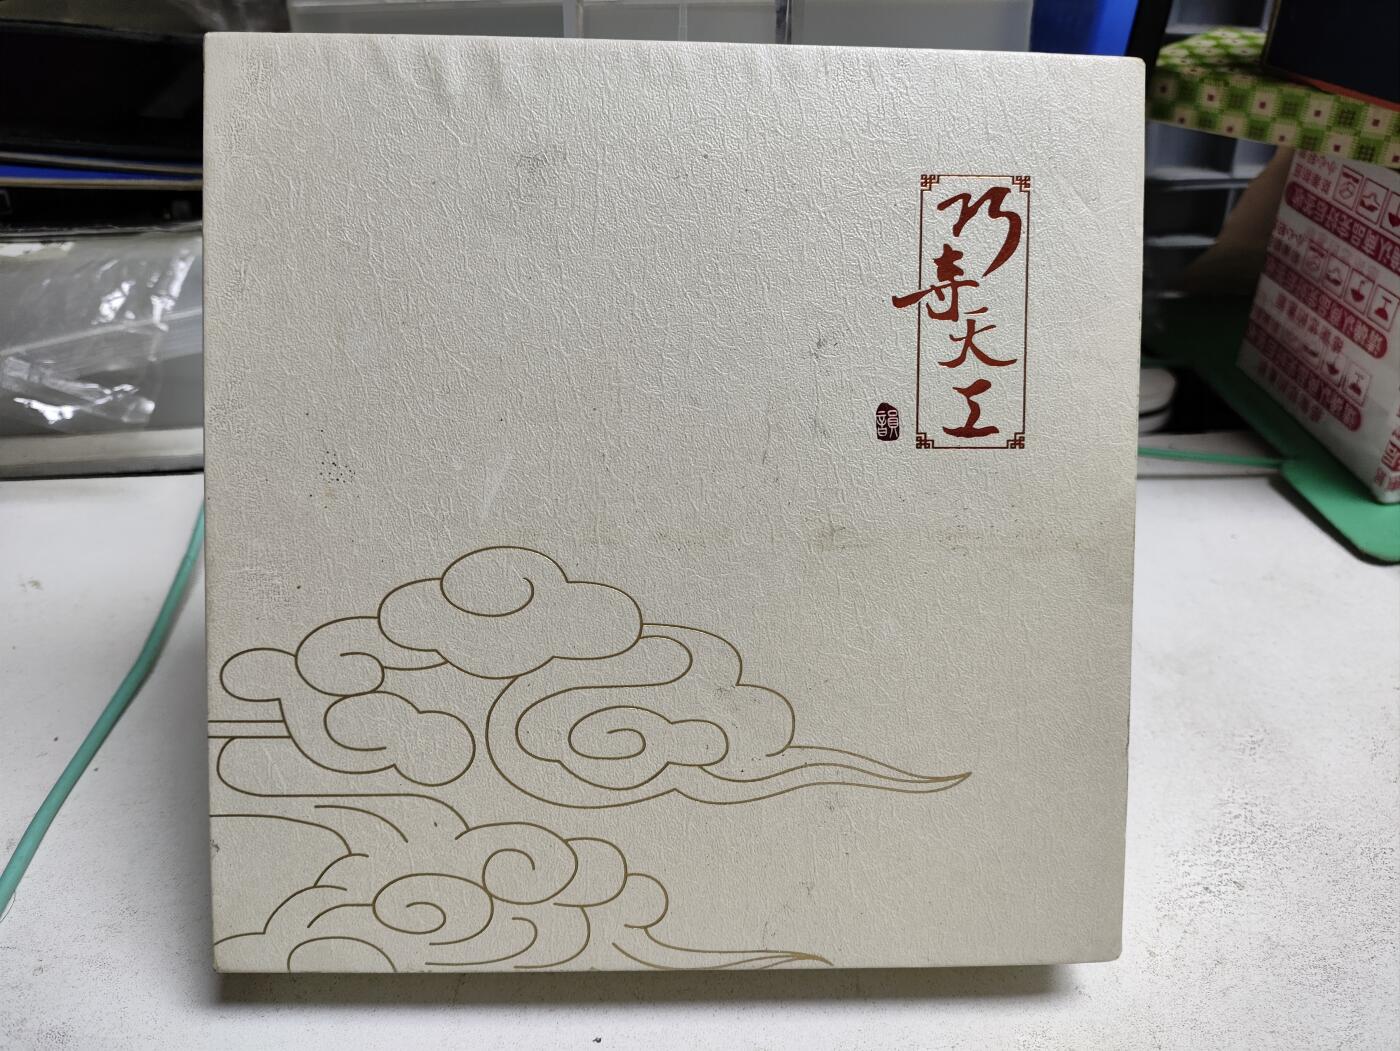 巧夺天工
韻